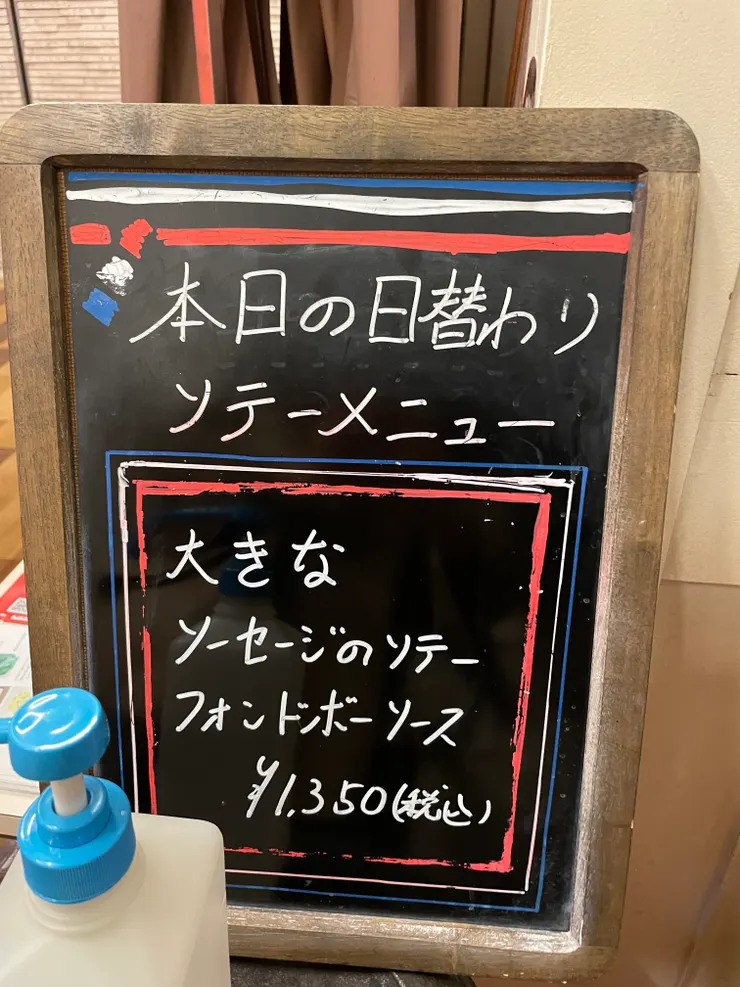 本日の日替わり
ソテーメニュー
大きな
ソーセージのソテー
フォンドボーソース
¥1,350(税込)